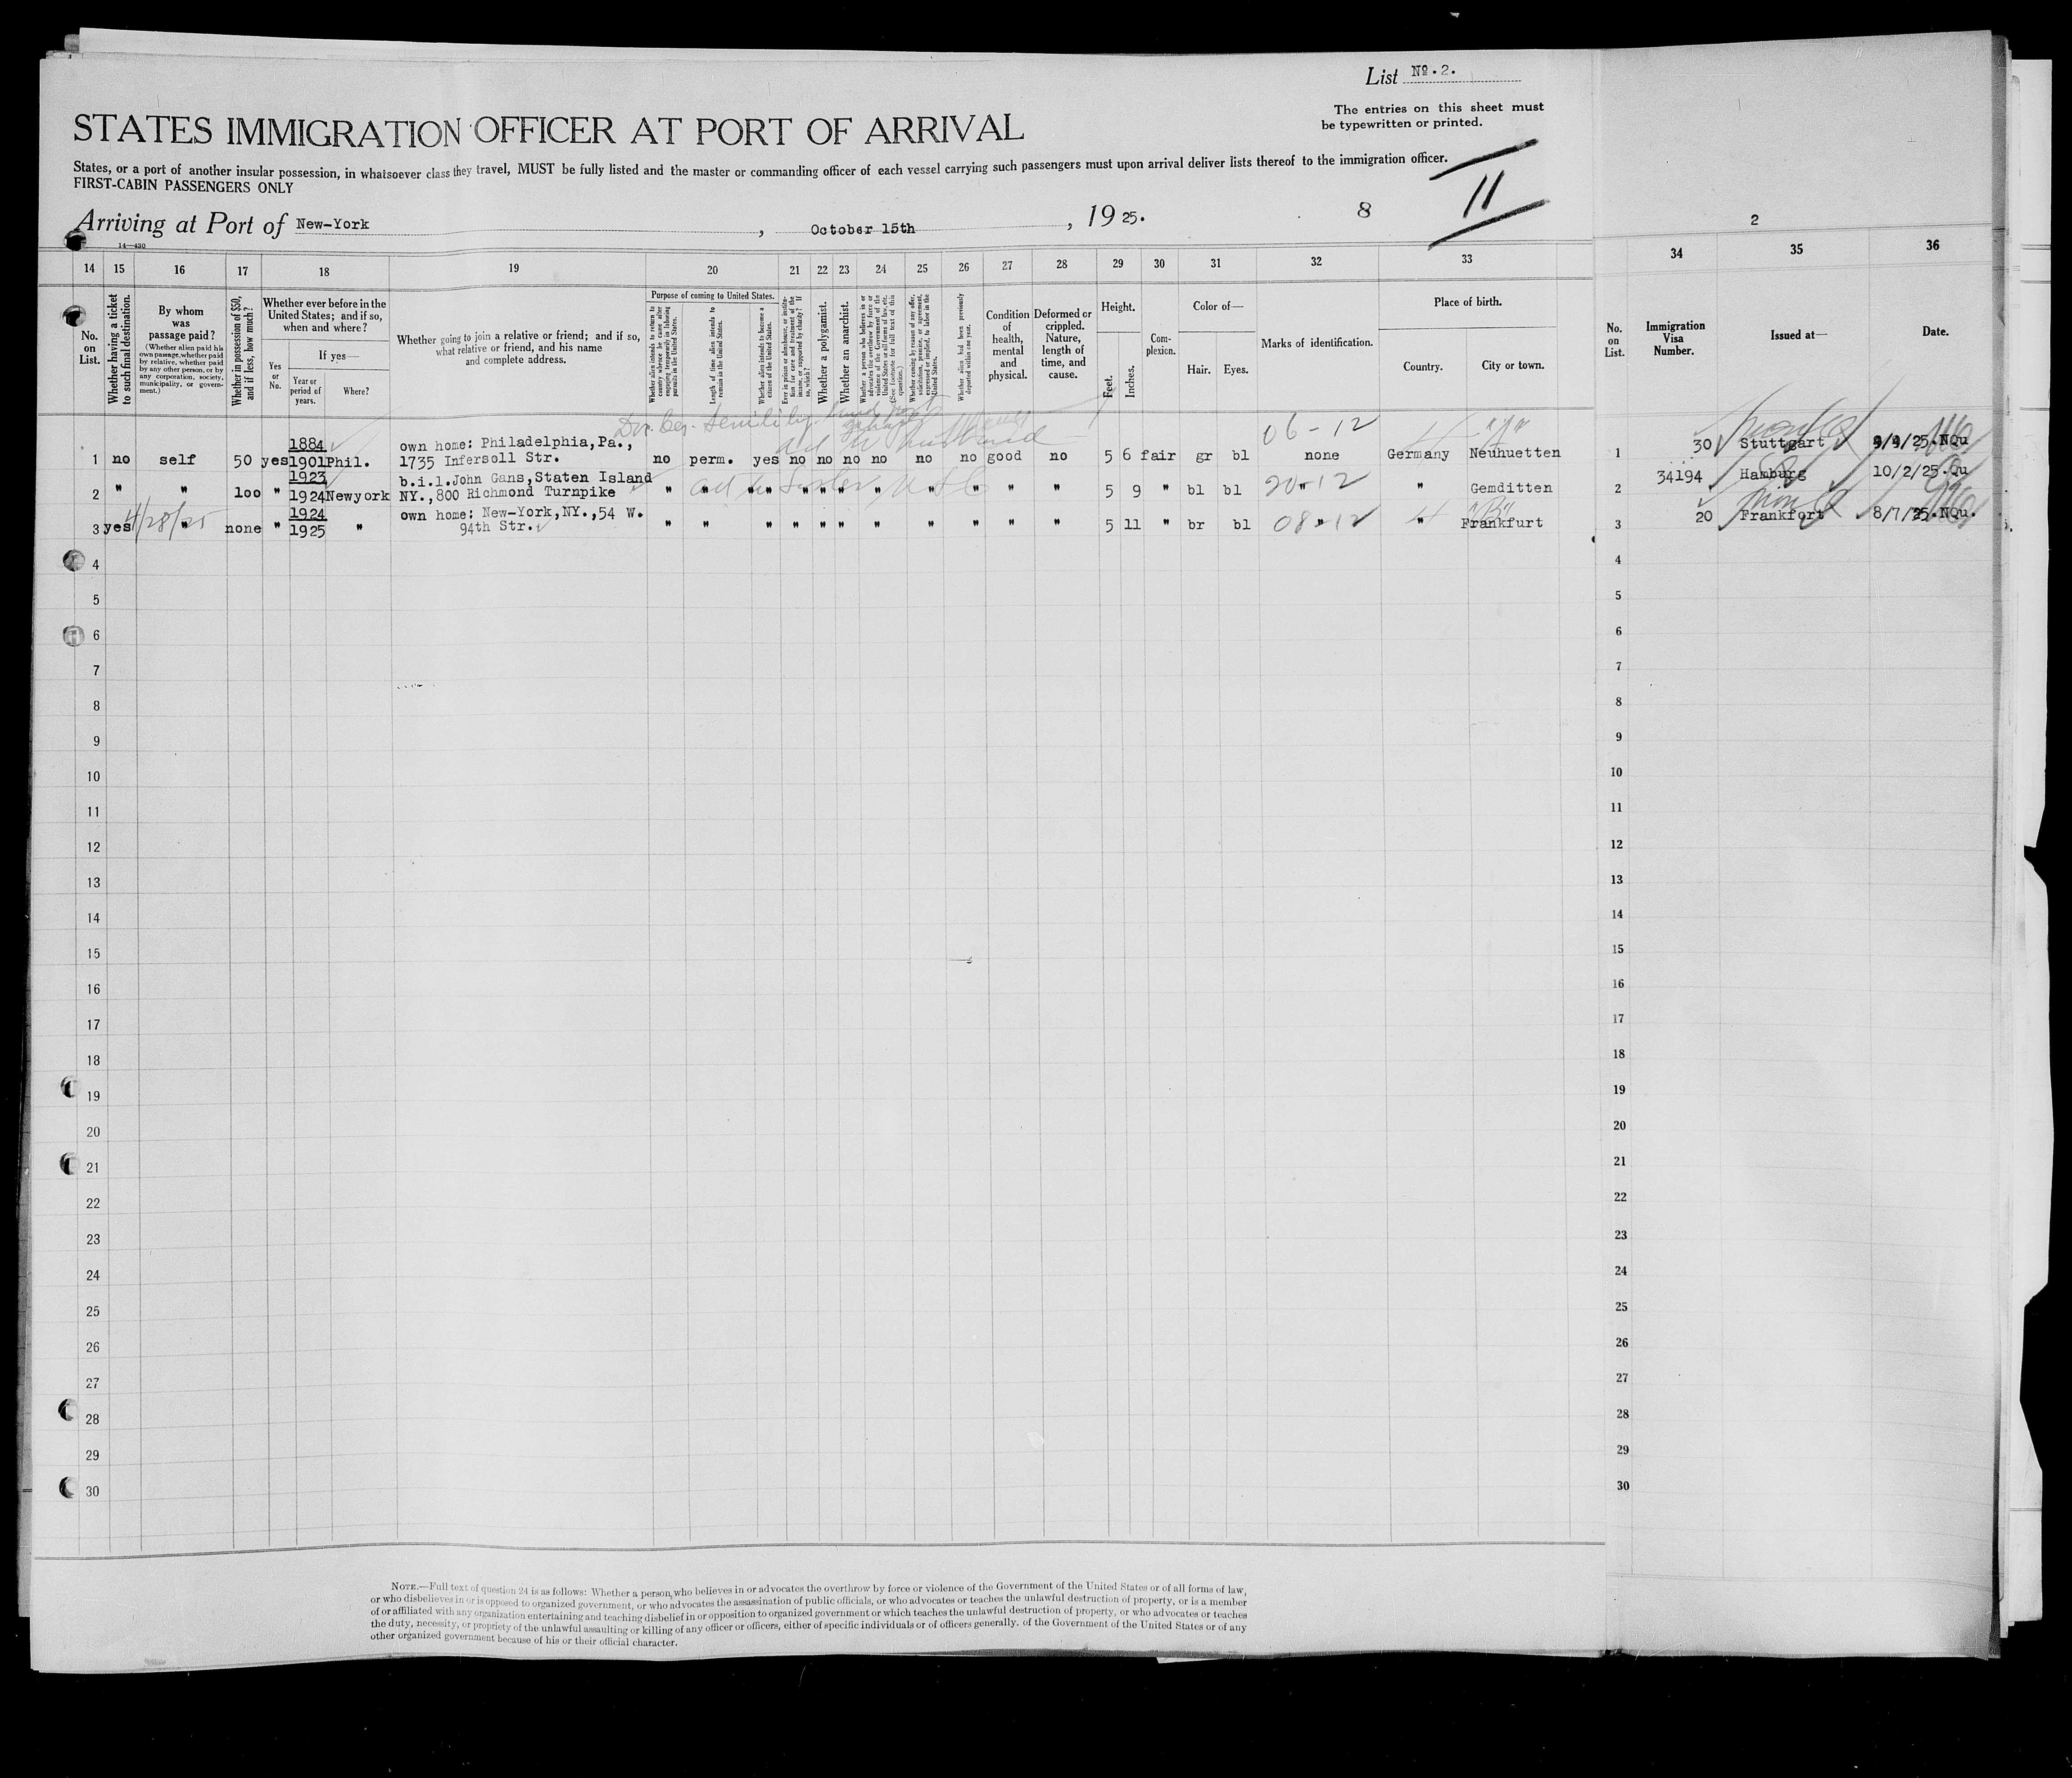 List No. 2.
The entries on this sheet must
be typewritten or printed.
STATES IMMIGRATION OFFICER AT PORT OF ARRIVAL
States, or a port of another insular possession, in whatsoever class they travel, MUST be fully listed and the master or commanding officer of each vessel carrying such passengers must upon arrival deliver lists thereof to the immigration officer.
FIRST-CABIN PASSENGERS ONLY
11
Arriving at Port of New-York, October 15th, 1925.
8
2
14—430
14 15 16 17 18 19 20 21 22 23 24 25 26 27 28 29 30 31 32 33 34 35 36
No. on List.
Whether having a ticket to such final destination.
By whom was passage paid?
(Whether alien paid his own passage, whether paid by relative, whether paid by any other person, or by any corporation, society, municipality, or government.)
Whether in possession of $50, and if less, how much?
Whether ever before in the United States; and if so, when and where?
Yes or No.
If yes—
Year or period of years.
Where?
Whether going to join a relative or friend; and if so, what relative or friend, and his name and complete address.
Purpose of coming to United States.
Whether alien intends to return to country whence he came after engaging temporarily in laboring pursuits in the United States.
Length of time alien intends to remain in the United States.
Whether alien intends to become a citizen of the United States.
Ever in prison or almshouse, or institution for care and treatment of the insane, or supported by charity? If so, which?
Whether a polygamist.
Whether an anarchist.
Whether a person who believes in or advocates the overthrow by force or violence of the Government of the United States or all forms of law, etc. (See footnote for full text of this question.)
Whether coming by reason of any offer, solicitation, promise, or agreement, expressed or implied, to labor in the United States.
Whether alien had been previously deported within one year.
Condition of health, mental and physical.
Deformed or crippled. Nature, length of time, and cause.
Height.
Feet.
Inches.
Complexion.
Color of—
Hair.
Eyes.
Marks of identification.
Place of birth.
Country.
City or town.
No. on List.
Immigration Visa Number.
Issued at—
Date.
06-12
1884 own home: Philadelphia, Pa., 30 Stuttgart 9/4/25.NQu
1 no self 50 yes 1901 Phil. 1735 Infersoll Str. no perm. yes no no no no no no good no 5 6 fair gr bl none Germany Neuhuetten 1
1923 b.i.l.John Gans,Staten Island 34194 Hamburg 10/2/25.Qu
2 " " 100 " 1924 Newyork NY.,800 Richmond Turnpike " " " " " " " " " " " 5 9 " bl bl 20-12 " Gemditten 2
1924 own home: New-York,NY.,54 W. 20 Frankfort 8/7/25.NQu.
3 yes 4/28/25 " none " 1925 " 94th Str. " " " " " " " " " " " 5 11 " br bl 08-12 " Frankfurt 3
4 4
5 5
6 6
7 7
8 8
9 9
10 10
11 11
12 12
13 13
14 14
15 15
16 16
17 17
18 18
19 19
20 20
21 21
22 22
23 23
24 24
25 25
26 26
27 27
28 28
29 29
30 30
NOTE.—Full text of question 24 is as follows: Whether a person who believes in or advocates the overthrow by force or violence of the Government of the United States or of all forms of law,
or who disbelieves in or is opposed to organized government, or who advocates the assassination of public officials, or who advocates or teaches the unlawful destruction of property, or is a member
of or affiliated with any organization entertaining and teaching disbelief in or opposition to organized government or which teaches the unlawful destruction of property, or who advocates or teaches
the duty, necessity, or propriety of the unlawful assaulting or killing of any officer or officers, either of specific individuals or of officers generally, of the Government of the United States or of any
other organized government because of his or their official character.